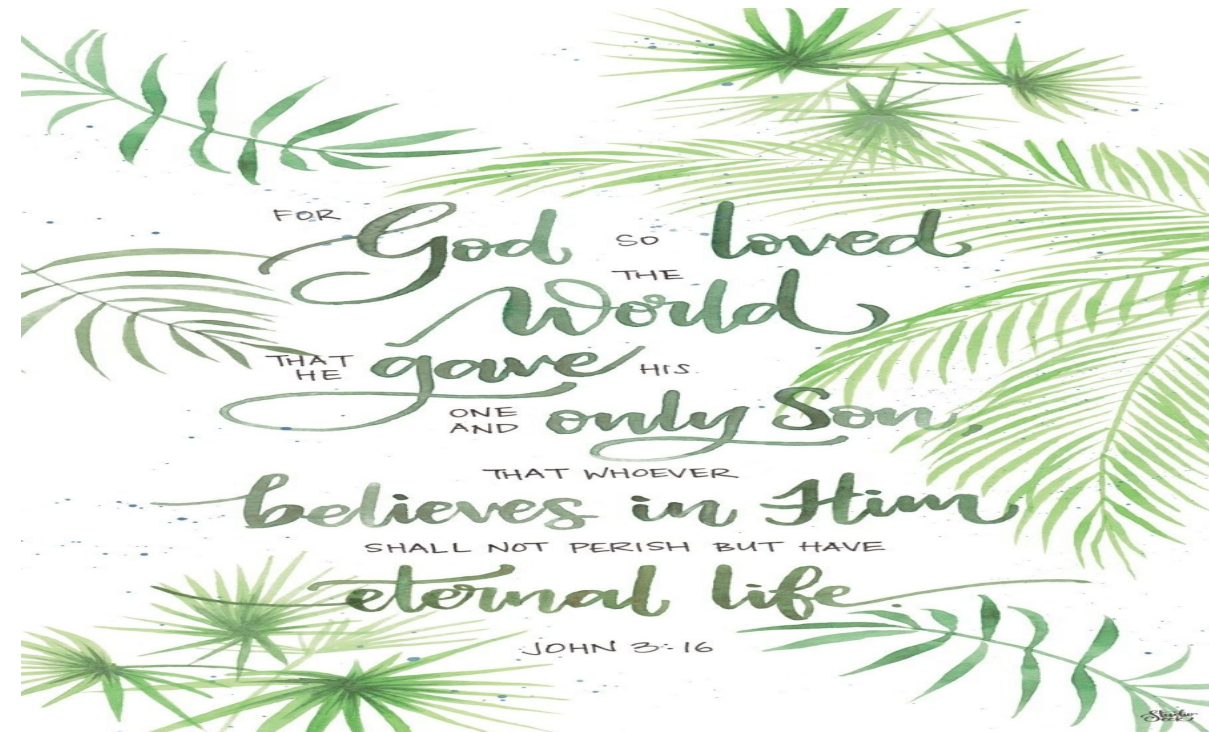 FOR God SO loved
THE
World
THAT HE gave HIS
ONE AND only Son,
THAT WHOEVER
believes in Him
SHALL NOT PERISH BUT HAVE
eternal life
JOHN 3:16